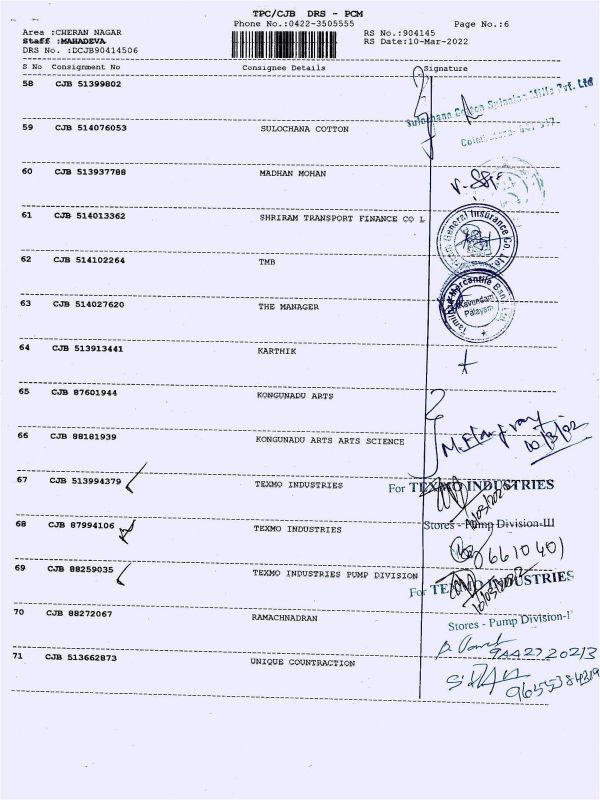 TPC/CJB DRS - PCM
Phone No.:0422-3505555 Page No.:6
Area :CHERAN NAGAR RS No.:904145
Staff :MAHADEVA RS Date:10-Mar-2022
DRS No. :DCJB90414506
S No Consignment No Consignee Details Signature
58 CJB 51399802
Sulochana Cotton Spinning Mills Pvt. Ltd
59 CJB 514076053 SULOCHANA COTTON
60 CJB 513937788 MADHAN MOHAN
61 CJB 514013362 SHRIRAM TRANSPORT FINANCE CO L
General Insurance Co. Ltd.
62 CJB 514102264 TMB
Tamilnad Mercantile Bank Ltd.
Kavundam
Palayam
63 CJB 514027620 THE MANAGER
64 CJB 513913441 KARTHIK
65 CJB 87601944 KONGUNADU ARTS
66 CJB 88181939 KONGUNADU ARTS ARTS SCIENCE
10/3/22
67 CJB 513994379 TEXMO INDUSTRIES
For TEXMO INDUSTRIES
68 CJB 87994106 TEXMO INDUSTRIES
Stores - Pump Division-III
69 CJB 88259035 TEXMO INDUSTRIES PUMP DIVISION
For TEXMO INDUSTRIES
70 CJB 88272067 RAMACHNADRAN
Stores - Pump Division-I
71 CJB 513662873 UNIQUE COUNTRACTION